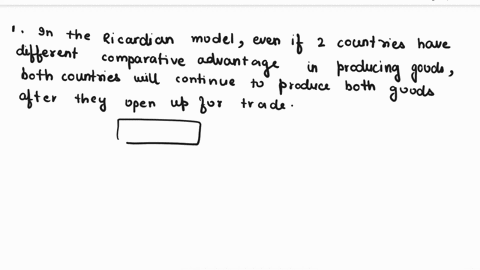 1. In the Ricardian model, even if 2 countries have
different comparative advantage in producing goods,
both countries will continue to produce both goods
after they open up for trade.